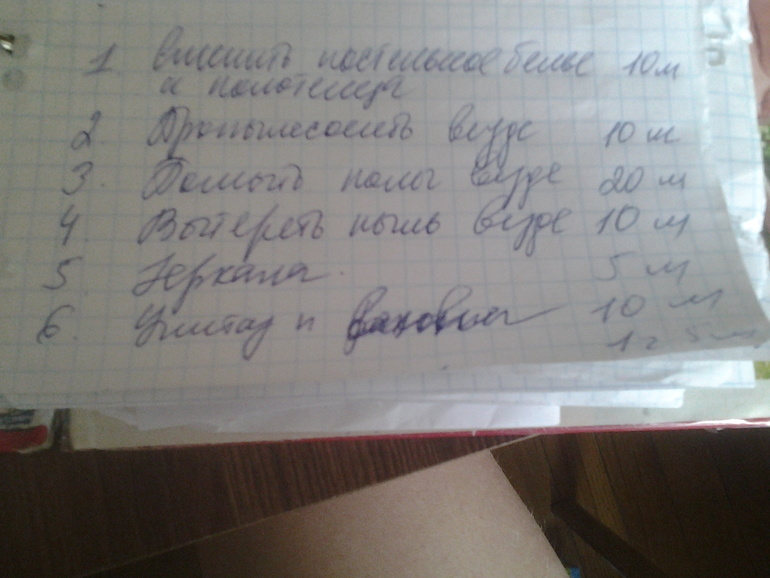 1 Сменить постельное белье 10 м
и полотенца
2. Пропылесосить везде 10 м
3. Помыть полы везде 20 м
4. Вытереть пыль везде 10 м
5. Зеркала. 5 м
6. Унитаз и раковины 10 м
1 г 5 м